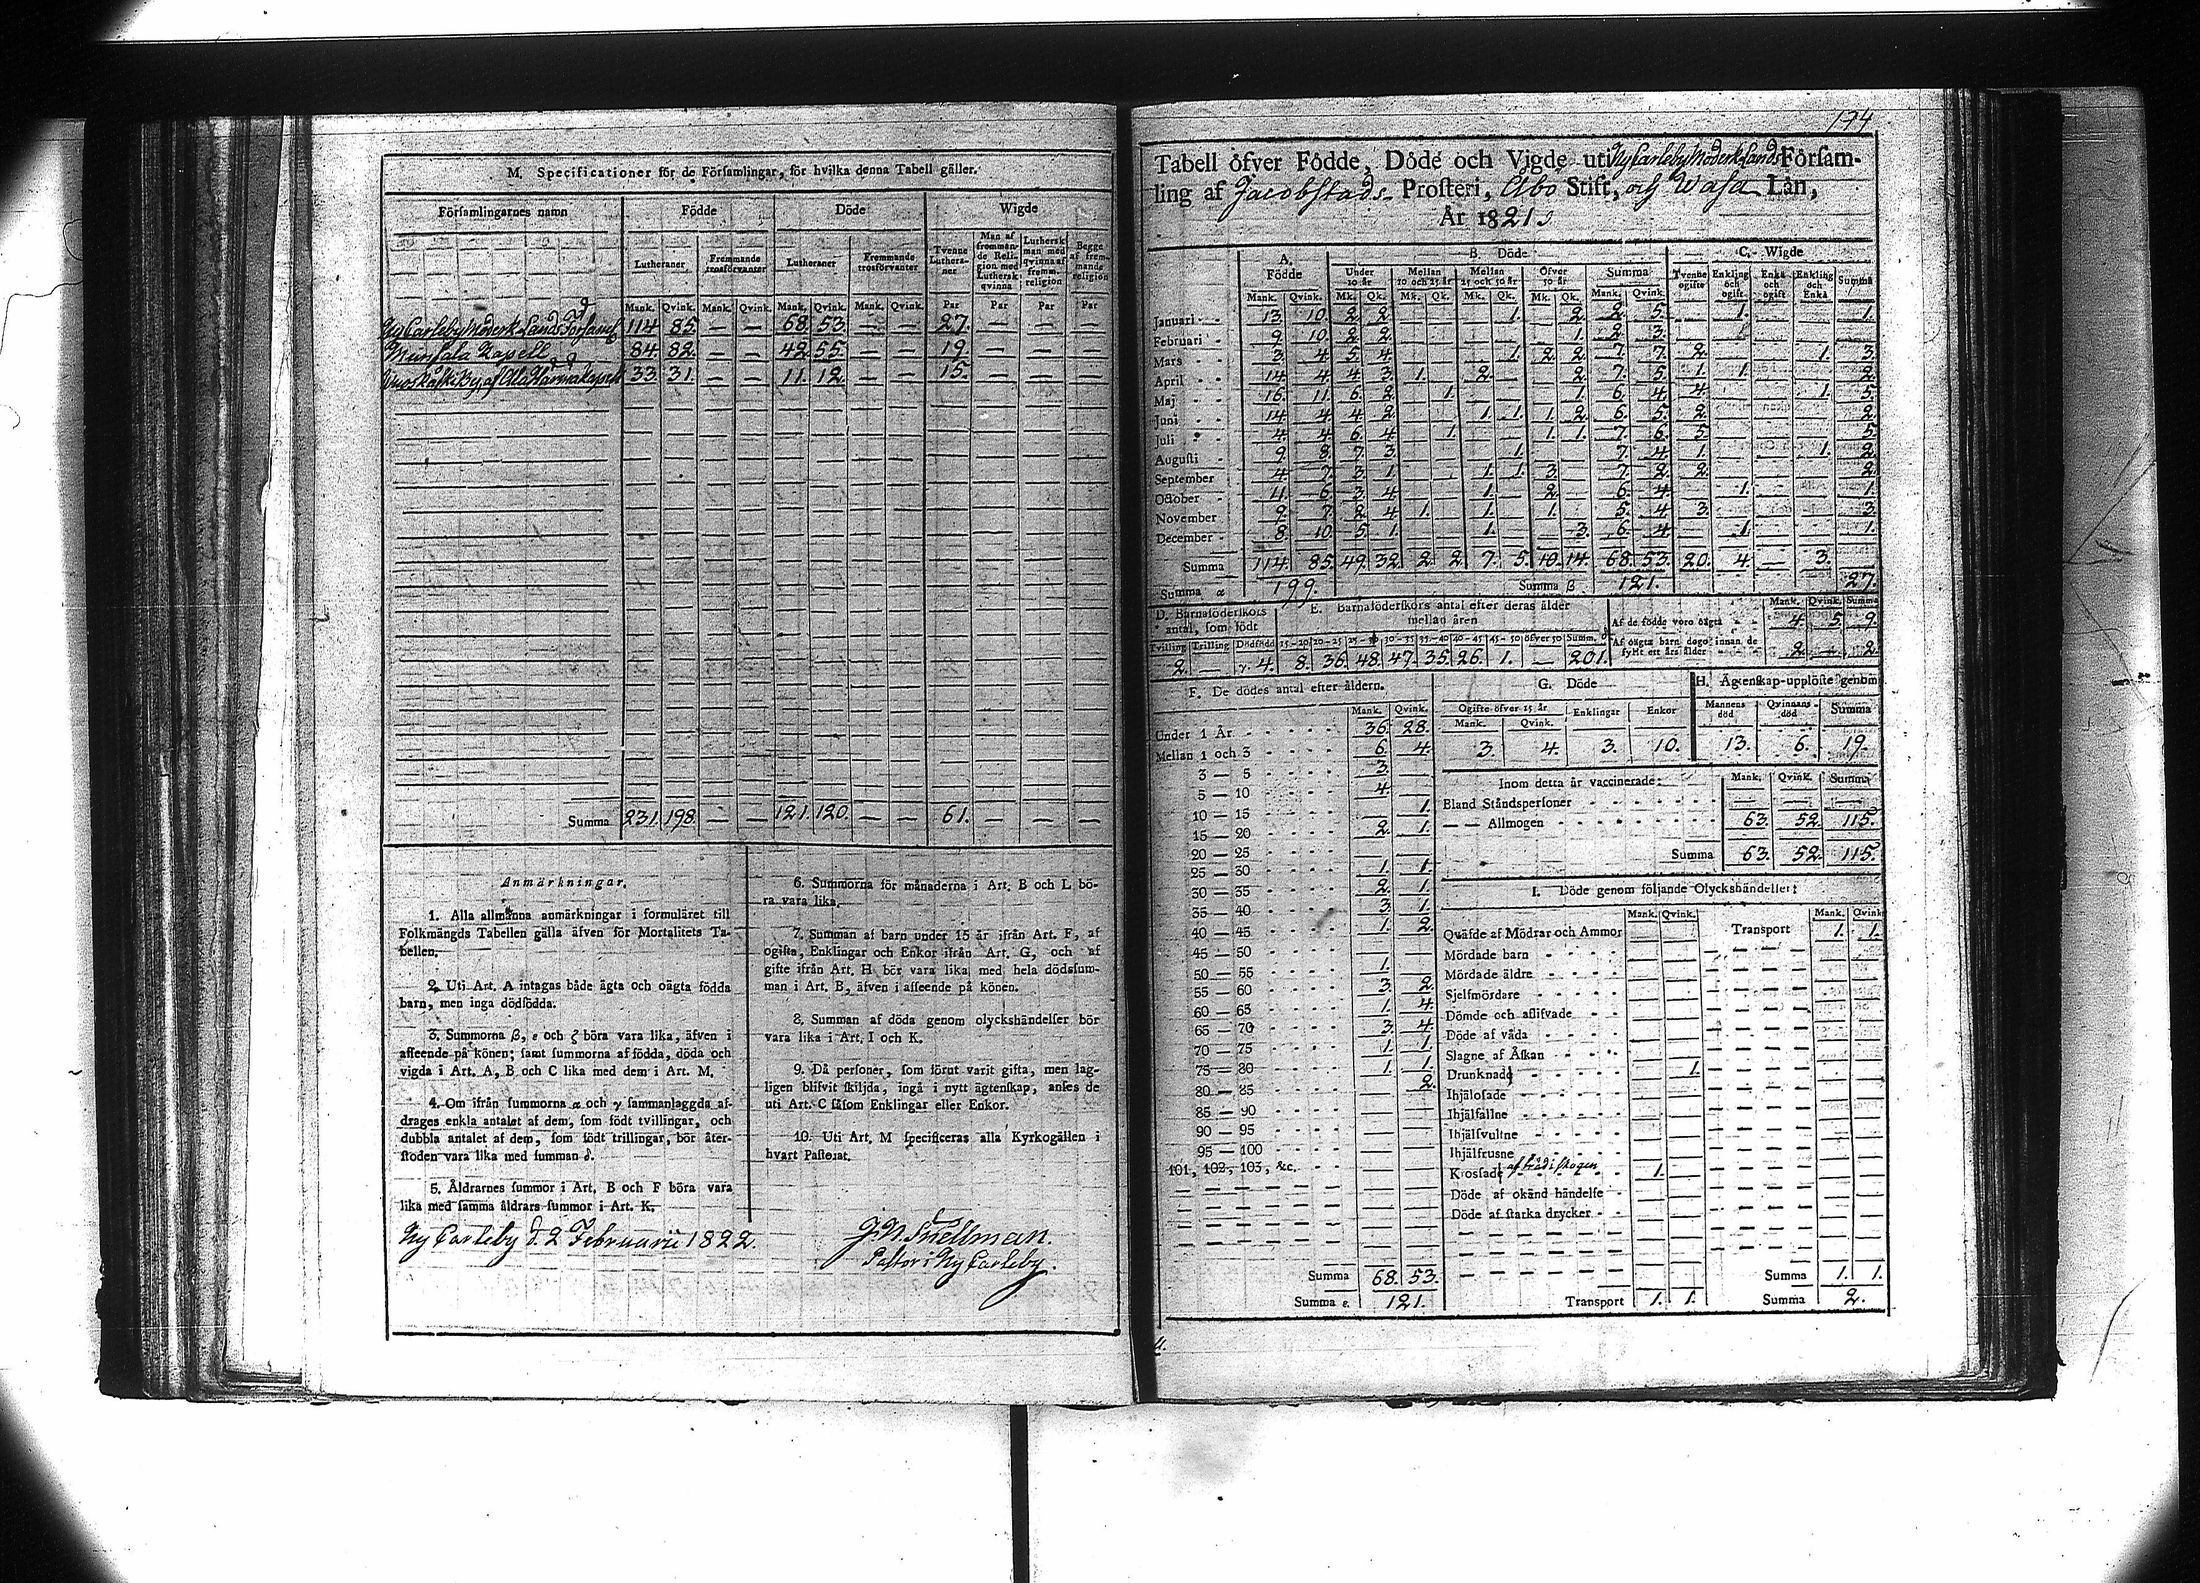 M. Specificationer för de Församlingar, för hvilka denna Tabell gäller.
Församlingarnes namn Födde Döde Wigde
Lutheraner Fremmande trosförvanter Lutheraner Fremmande trosförvanter Tvenne Lutheraner Man af fremmande Religion med Luthersk qvinna Luthersk man med qvinna af fremm. religion Begge af fremmande religion
Mank. Qvink. Mank. Qvink. Mank. Qvink. Mank. Qvink. Par Par Par Par
NyCarleby Moderk. Lands Förs 114 85 — — 68. 53. — — 27. — — —
Munsala Kapell 84. 82. — — 42. 55. — — 19 — — —
By af Ala Härmä Kapell 33. 31. — — 11. 12. — — 15. — — —
Summa 231. 198. — — 121. 120. — — 61. — — —
Anmärkningar.
1. Alla allmänna anmärkningar i formuläret till
Folkmängds Tabellen gälla äfven för Mortalitets Ta-
bellen.
2. Uti Art. A intagas både ägta och oägta födda
barn, men inga dödfödda.
3. Summorna β, ε och ζ böra vara lika, äfven i
afseende på könen; samt summorna af födda, döda och
vigda i Art. A, B och C lika med dem i Art. M.
4. Om ifrån summorna α och γ sammanlaggda af-
drages enkla antalet af dem, som födt tvillingar, och
dubbla antalet af dem, som födt trillingar, bör åter-
stoden vara lika med summan δ.
5. Åldrarnes summor i Art. B och F böra vara
lika med samma åldrars summor i Art. K.
6. Summorna för månaderna i Art. B och L bö-
ra vara lika.
7. Summan af barn under 15 år ifrån Art. F, af
ogifta, Enklingar och Enkor ifrån Art. G, och af
gifte ifrån Art. H bör vara lika med hela dödssum-
man i Art. B, äfven i afseende på könen.
8. Summan af döda genom olyckshändelser bör
vara lika i Art. I och K.
9. Då personer, som förut varit gifta, men lag-
ligen blifvit skiljda, ingå i nytt ägtenskap, anses de
uti Art. C såsom Enklingar eller Enkor.
10. Uti Art. M specificeras alla Kyrkogällen i
hvart Pastorat.
Ny Carleby d. 2 Februarii 1822.
J. N. Snellman.
Pastor i Ny Carleby.
174
Tabell öfver Födde, Döde och Vigde uti NyCarleby Moderk. Lands Församling af Jacobstads Prosteri, Åbo Stift, och Wasa Län,
År 1821.
A. Födde B. Döde C. Wigde
Under 10 år Mellan 10 och 25 år Mellan 25 och 50 år Öfver 50 år Summa Tvenne ogifte Enkling och ogift Enka och ogift Enkling och Enka Summa
Mank. Qvink. Mk. Qk. Mk. Qk. Mk. Qk. Mk. Qk. Mank. Qvink.
Januari 13 10. 2 2. 1. 2. 2. 5. 1. 1.
Februari 9 10. 2 2. 1. 2. 3.
Mars 3 4 5 4. 1. 2. 2. 7. 7. 2. 1. 3.
April 14. 4. 4 3. 1. 2. 2. 7. 5. 1. 1. 2.
Maj 16. 11. 6. 2. 1. 1. 6. 4. 4. 1. 5.
Juni 14 4 4. 2 1. 1. 1. 2. 6. 5. 2. 2.
Juli 4. 4 6. 4 1. 1. 1. 7. 6. 5 5.
Augusti 9. 8. 7. 3. 1. 7 4 1. 1. 2.
September 4 7. 3. 1. 1. 1. 3. 7. 2. 2. 2.
October 11. 6. 3. 4 1. 2. 6. 4 1. 1.
November 9. 7. 2. 4 1. 1. 1. 5. 4 3 3.
December 8. 10. 5. 1. 1. 3. 6. 4 1. 1.
Summa 114. 85. 49. 32. 2. 2. 7. 5. 10. 14. 68. 53. 20. 4. — 3.
Summa α 199. Summa β 121. 27.
D. Barnaföderskors antal, som födt
Tvilling Trilling Dödfödd
2. — γ. 4.
E. Barnaföderskors antal efter deras ålder mellan åren
15-20 20-25 25-30 30-35 35-40 40-45 45-50 öfver 50 Summ. δ
8. 36. 48. 47. 35. 26. 1. — 201.
Mank. Qvink. Summa
Af de födde voro oägta 4. 5. 9.
Af oägta barn dogo innan de fyllt ett års ålder 2. — 2.
F. De dödes antal efter åldern.
Mank. Qvink.
Under 1 År 36. 28.
Mellan 1 och 3 6. 4.
3 — 5 3.
5 — 10 4.
10 — 15 1.
15 — 20 2. 1.
20 — 25
25 — 30 1. 1.
30 — 35 2. 1.
35 — 40 3. 1.
40 — 45 1. 2.
45 — 50
50 — 55 1.
55 — 60 3. 2.
60 — 65 1. 4
65 — 70 3. 4.
70 — 75 1. 1.
75 — 80 1. 1.
80 — 85 2.
85 — 90
90 — 95
95 — 100
101, 102, 103, &c.
Summa 68. 53.
Summa ε. 121.
G. Döde
Ogifte öfver 15 år Enklingar Enkor
Mank. Qvink.
3. 4. 3. 10.
H. Ägtenskap upplöste genom
Mannens död Qvinnans död Summa
13. 6. 19.
Inom detta år vaccinerade: Mank. Qvink. Summa
Bland Ståndspersoner
— — Allmogen 63. 52. 115.
Summa 63. 52. 115.
I. Döde genom följande Olyckshändelser:
Mank. Qvink. Mank. Qvink.
Qväfde af Mödrar och Ammor Transport 1. 1.
Mördade barn
Mördade äldre
Sjelfmördare
Dömde och aflifvade
Döde af våda
Slagne af Åskan
Drunknade 1.
Ihjälosade
Ihjälfallne
Ihjälsvultne
Ihjälfrusne
Krossade af träd i skogen 1.
Döde af okänd händelse
Döde af starka drycker
Summa 1. 1.
Transport 1. 1. Summa 2.